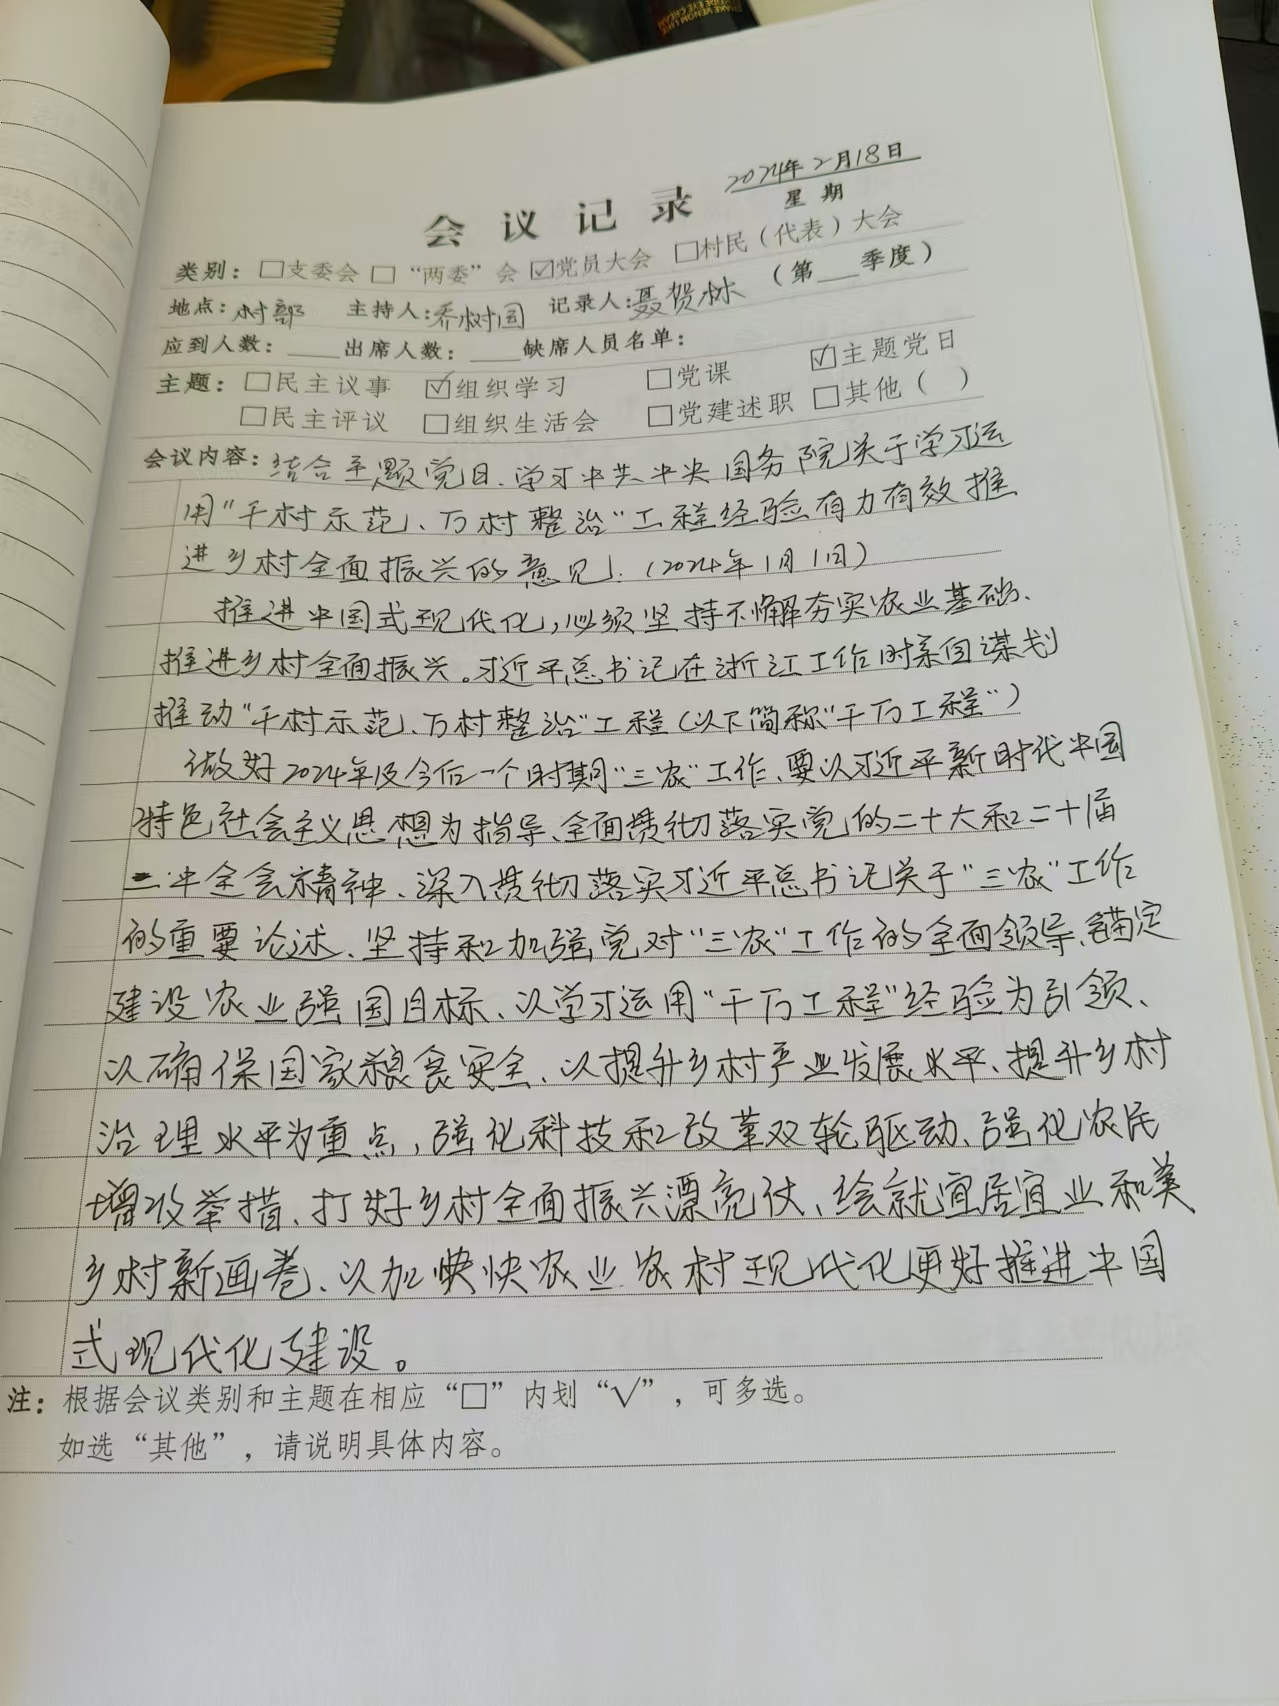 2024年2月18日
会议记录 星期
类别：☐支委会 ☐“两委”会 ☑党员大会 ☐村民（代表）大会
地点：村部 主持人：乔树国 记录人：聂贺林 （第__季度）
应到人数：____出席人数：____缺席人员名单：
主题：☐民主议事 ☑组织学习 ☐党课 ☑主题党日
☐民主评议 ☐组织生活会 ☐党建述职 ☐其他（ ）
会议内容：结合主题党日、学习中共中央国务院关于学习运
用“千村示范、万村整治”工程经验有力有效推
进乡村全面振兴的意见．（2024年1月1日）
推进中国式现代化，必须坚持不懈夯实农业基础、
推进乡村全面振兴。习近平总书记在浙江工作时亲自谋划
推动“千村示范、万村整治”工程（以下简称“千万工程”）
做好2024年及今后一个时期“三农”工作、要以习近平新时代中国
特色社会主义思想为指导、全面贯彻落实党的二十大和二十届
二中全会精神、深入贯彻落实习近平总书记关于“三农”工作
的重要论述、坚持和加强党对“三农”工作的全面领导、锚定
建设农业强国目标、以学习运用“千万工程”经验为引领、
以确保国家粮食安全、以提升乡村产业发展水平、提升乡村
治理水平为重点，强化科技和改革双轮驱动、强化农民
增收举措、打好乡村全面振兴漂亮仗、绘就宜居宜业和美
乡村新画卷、以加快快农业农村现代化更好推进中国
式现代化建设。
注：根据会议类别和主题在相应“☐”内划“√”，可多选。
如选“其他”，请说明具体内容。